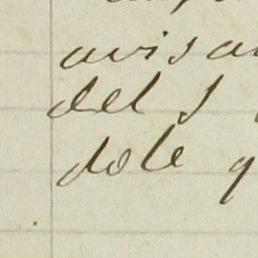 avisa
del S
dole q